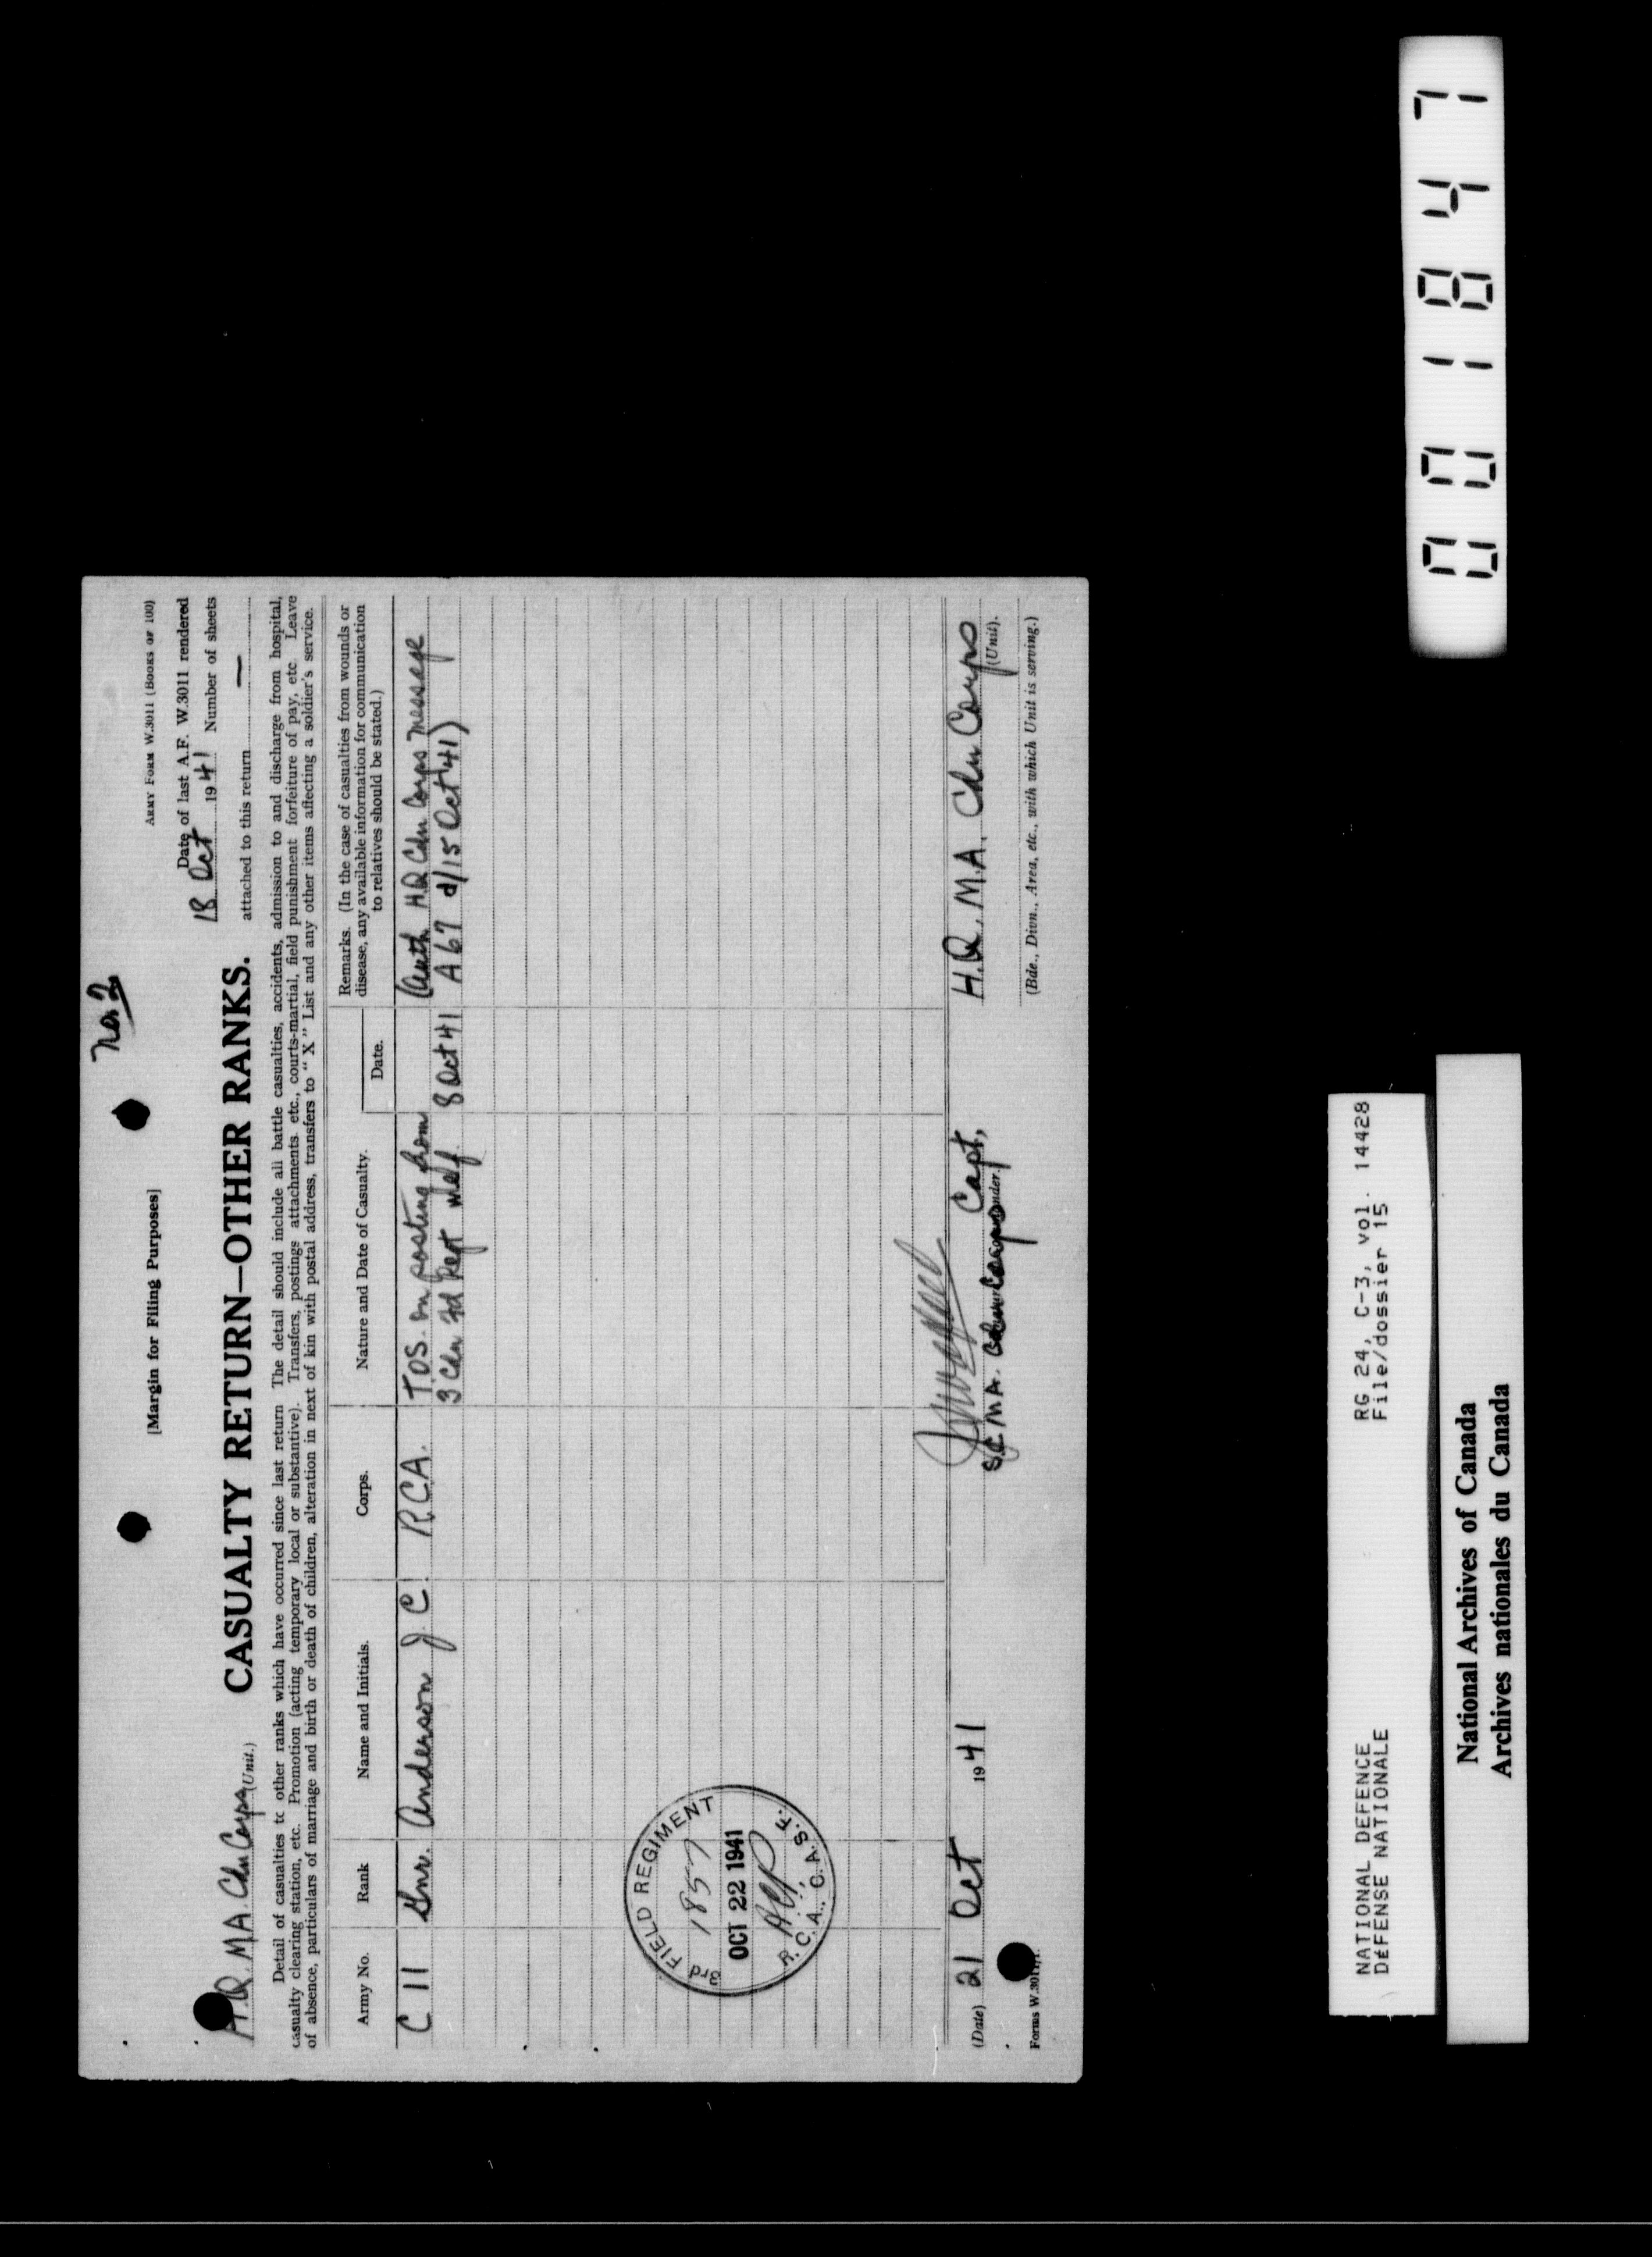 No. 2
[Margin for Filing Purposes]
ARMY FORM W.3011 (BOOKS OF 100)
H.Q. M.A. Cdn Corps (Unit.)
CASUALTY RETURN—OTHER RANKS.
Date of last A.F. W.3011 rendered
18 Oct 1941 Number of sheets
attached to this return —
Detail of casualties to other ranks which have occurred since last return The detail should include all battle casualties, accidents, admission to and discharge from hospital,
casualty clearing station, etc. Promotion (acting temporary local or substantive). Transfers, postings attachments. etc., courts-martial, field punishment forfeiture of pay, etc Leave
of absence, particulars of marriage and birth or death of children, alteration in next of kin with postal address, transfers to “ X ” List and any other items affecting a soldier's service.
Army No. Rank Name and Initials. Corps. Nature and Date of Casualty. Date. Remarks. (In the case of casualties from wounds or
disease, any available information for communication
to relatives should be stated.)
C 11 Gnr. Anderson J. C. R.C.A. T.O.S. on posting from (Auth H.Q Cdn Corps Message
3 Cdn Fd Regt wef. 8 Oct 41 A 67 d/15 Oct 41)
3rd FIELD REGIMENT
1857
OCT 22 1941
R. C. A., C. A. S. F.
Capt,
(Date) 21 Oct 1941 S.C. M.A. Corps H.Q. M.A. Cdn Corps (Unit).
(Bde., Divn., Area, etc., with which Unit is serving.)
Forms W.3011/1.
001847
NATIONAL DEFENCE RG 24, C-3, vol. 14428
DÉFENSE NATIONALE File/dossier 15
National Archives of Canada
Archives nationales du Canada